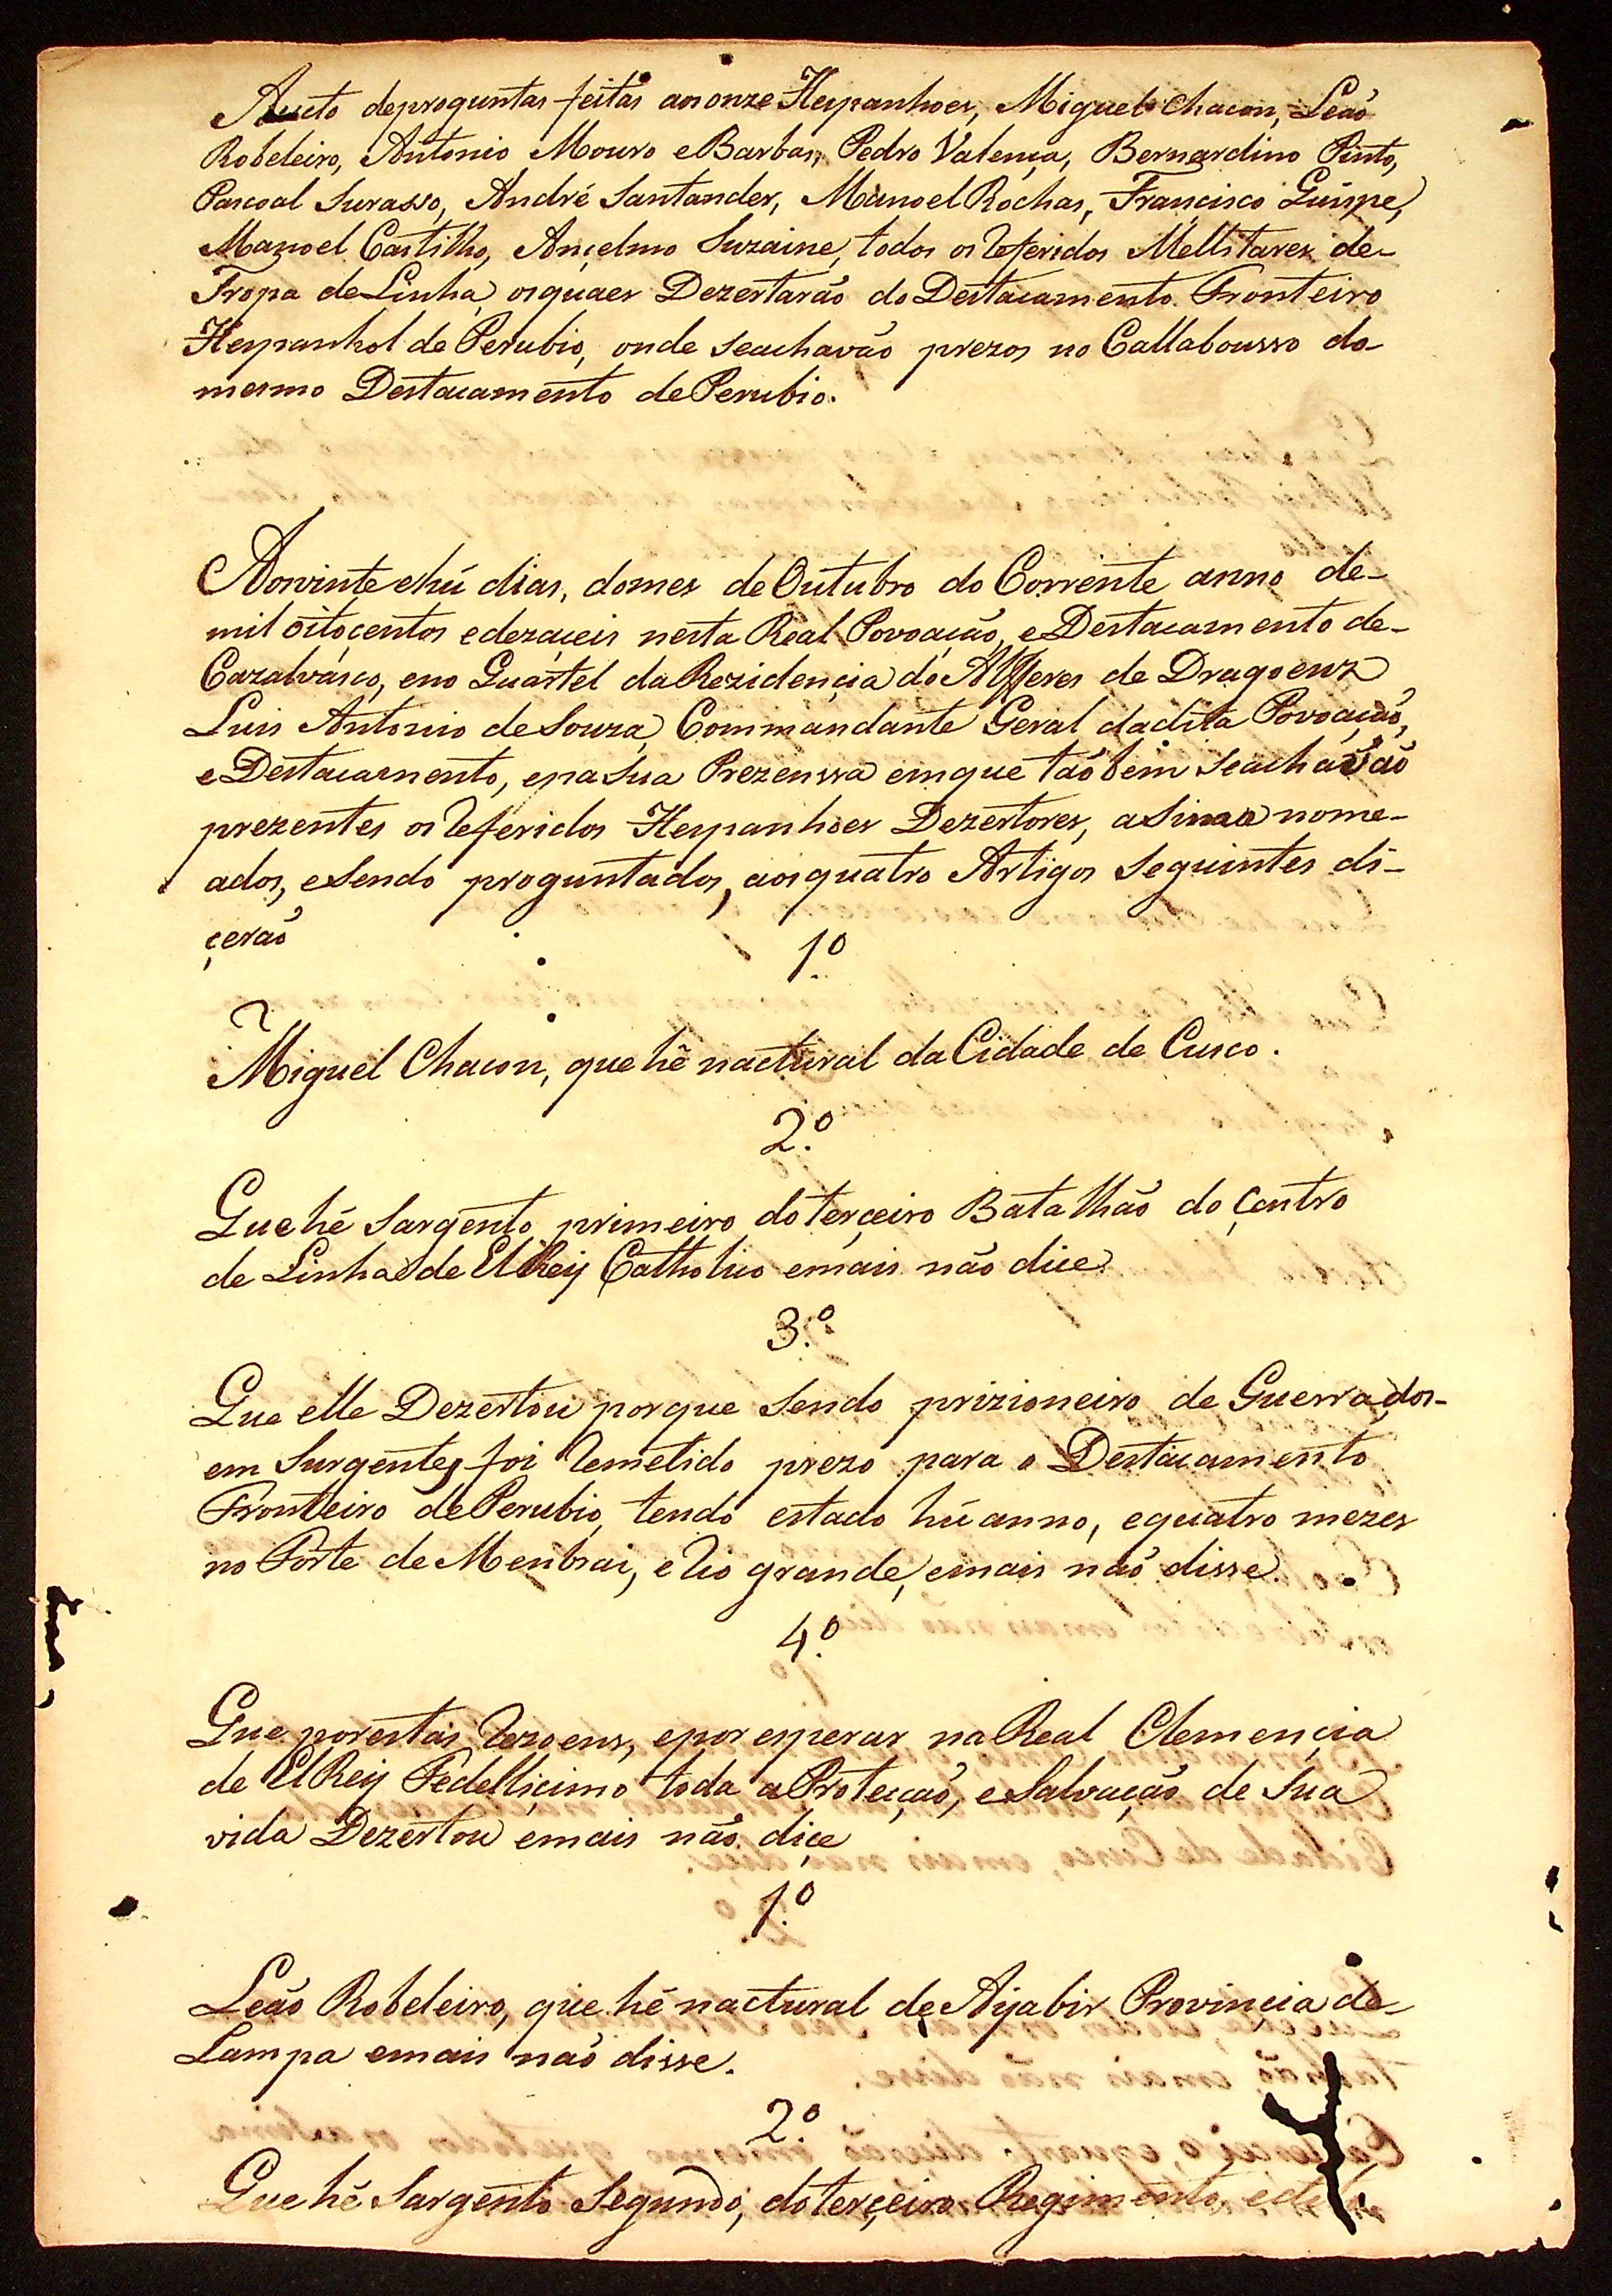 Aucto deproguntas feitas aos onze Hespanhoes, Miguel Chacon, Leaõ
Robeleiro, Antonio Mouro e Barbas, Pedro Valença, Bernardino Pinto,
Pascoal Surasso, André Santander, Manoel Rochas, Francisco Guispe,
Manoel Castilho, Ançelmo Suzaine, todos os referidos Mellitares de-
Tropa de Linha, os quaes Dezertarão do Destacamento Fronteiro
Hespanhol de Perubio, onde seachavão prezos no Callabousso do
mesmo Destacamento de Perubio.
Aos vinte e hũ dias, domes de Outubro do Corrente anno de-
mil oitoçentos e dezaçeis nesta Real Povoação, e Destacamento de-
Cazalvasco, eno Quartel da Rezidençia do Alfferes de Dragoens
Luis Antonio de Souza, Commandante Geral dadita Povoação,
e Destacamento, ena Sua Prezenssa emque taõbem Seachavaõ
prezentes os referidos Hespanhoes Dezertores, aSima nome-
ados, eSendo proguntados, aos quatro Artigos Seguintes di-
çeraõ
1º
Miguel Chacon, que hé nactural da Cidade de Cusco.
2º
Que hé Sargento primeiro do terçeiro Batalhão do Çentro
de Linha de ElRey Catholico emais não dice
3º
Que elle Dezertou porque Sendo prizioneiro de Guerra dos-
em Surgentes foi remetido prezo para o Destacamento
Fronteiro de Perubio, tendo estado hũ anno, equatro mezes
no Forte de Menbrai, e rio grande, emais naõ disse.
4º
Que por estas rezoens, epor esperar na Real Clemençia
de ElRey Fedelliçimo toda a Proteçaõ, eSalvação de Sua
vida Dezertou emais não diçe
1º
Leão Robeleiro, que hé nactural de Ajabir Provincia de-
Lampa emais naõ disse.
2º
Que hé Sargento Segundo, do terçeiro Regimento, e de